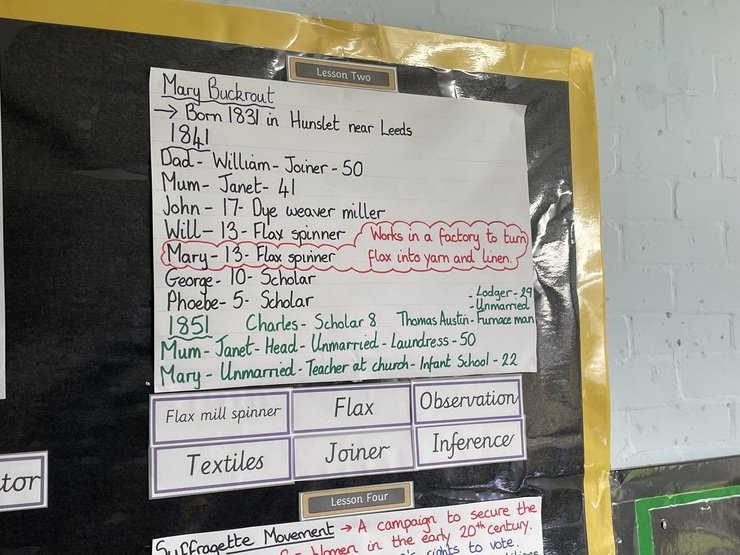 Lesson Two
Mary Buckrout
→ Born 1831 in Hunslet near Leeds
1841
Dad - William - Joiner - 50
Mum - Janet - 41
John - 17 - Dye weaver miller
Will - 13 - Flax spinner
Mary - 13 - Flax spinner
Works in a factory to turn
flax into yarn and linen.
George - 10 - Scholar
Phoebe - 5 - Scholar
1851 Charles - Scholar 8 Thomas Austin - Furnace man
- Lodger - 29
- Unmarried
Mum - Janet - Head - Unmarried - Laundress - 50
Mary - Unmarried - Teacher at church - Infant School - 22
Flax mill spinner
Flax
Observation
Textiles
Joiner
Inference
tor
Lesson Four
Suffragette Movement → A campaign to secure the
Women in the early 20th century.
rights to vote.